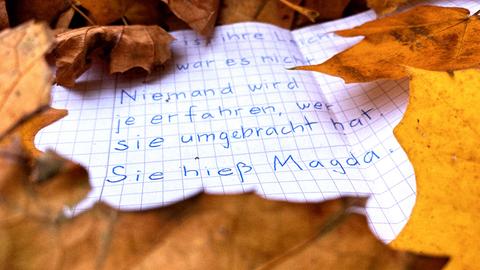 ist ihre Leich
war es nicht
Niemand wird
je erfahren, wer
sie umgebracht hat.
Sie hieß Magda.